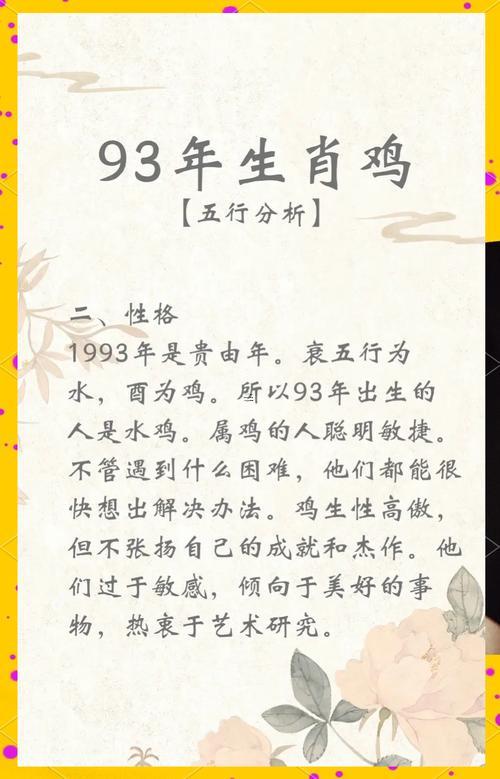 93年生肖鸡
【五行分析】
二、性格
1993年是贵由年。衰五行为
水，酉为鸡。所以93年出生的
人是水鸡。属鸡的人聪明敏捷。
不管遇到什么困难，他们都能很
快想出解决办法。鸡生性高傲，
但不张扬自己的成就和杰作。他
们过于敏感，倾向于美好的事
物，热衷于艺术研究。